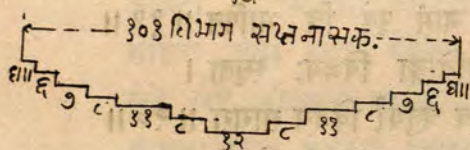 १०१ विभाग सप्तनासक.
४॥ ६ ७ ८ ११ ८ १२ ८ ११ ८ ७ ६ ४॥